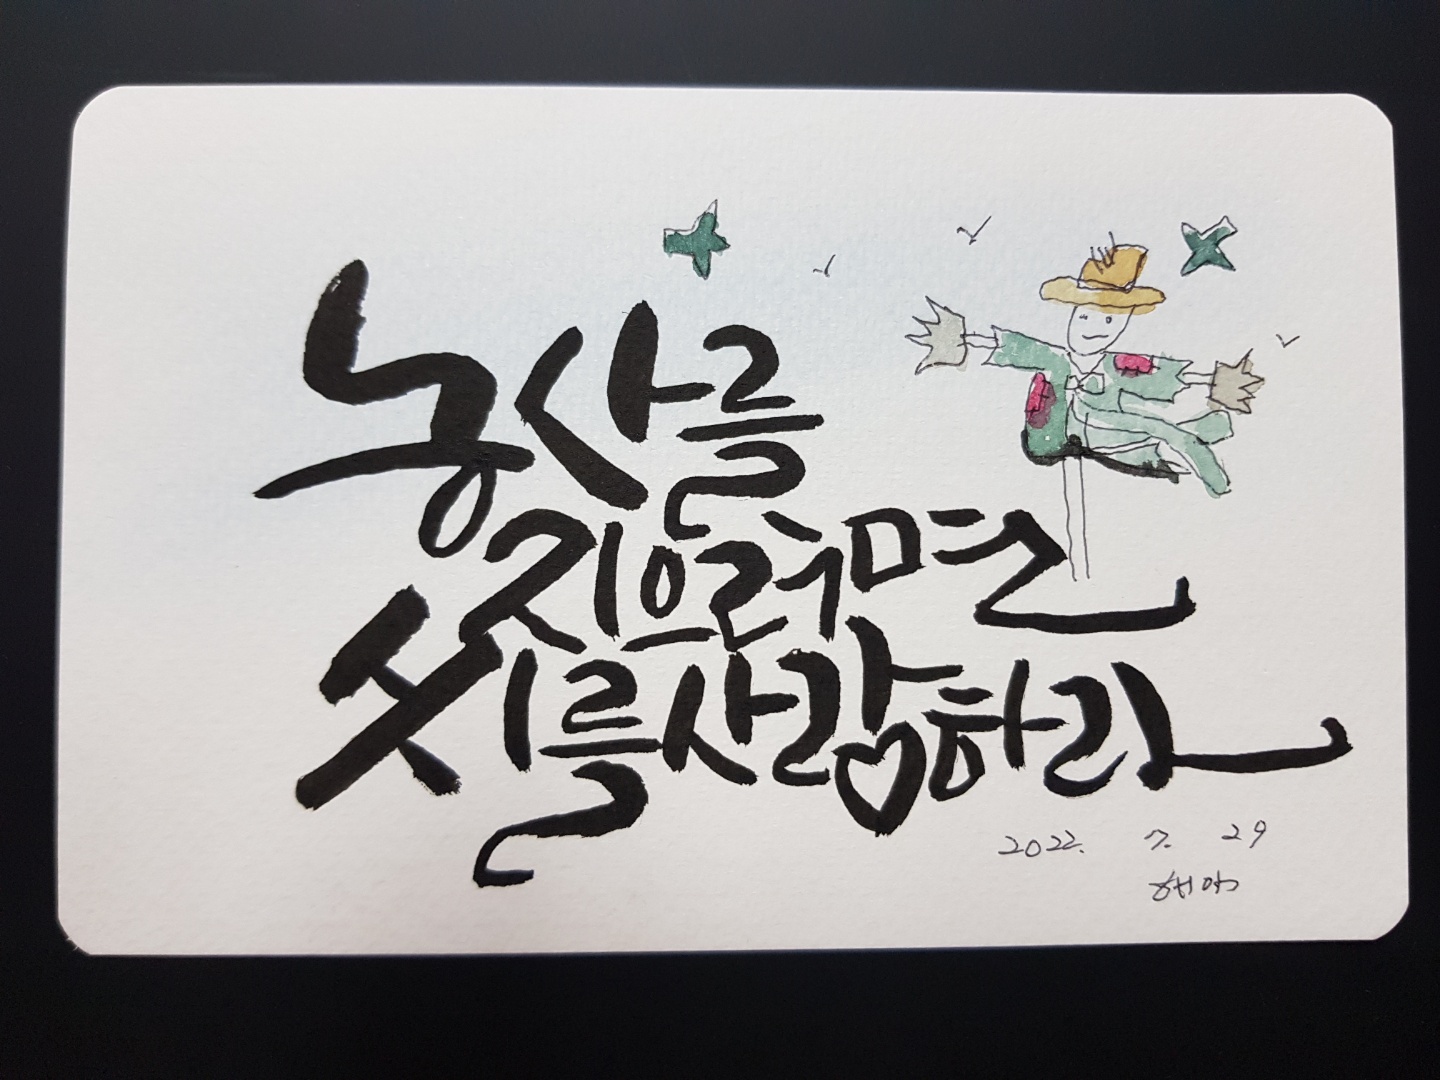 농사를
지으려면
씨를사랑하라
2022. 7. 29
해야